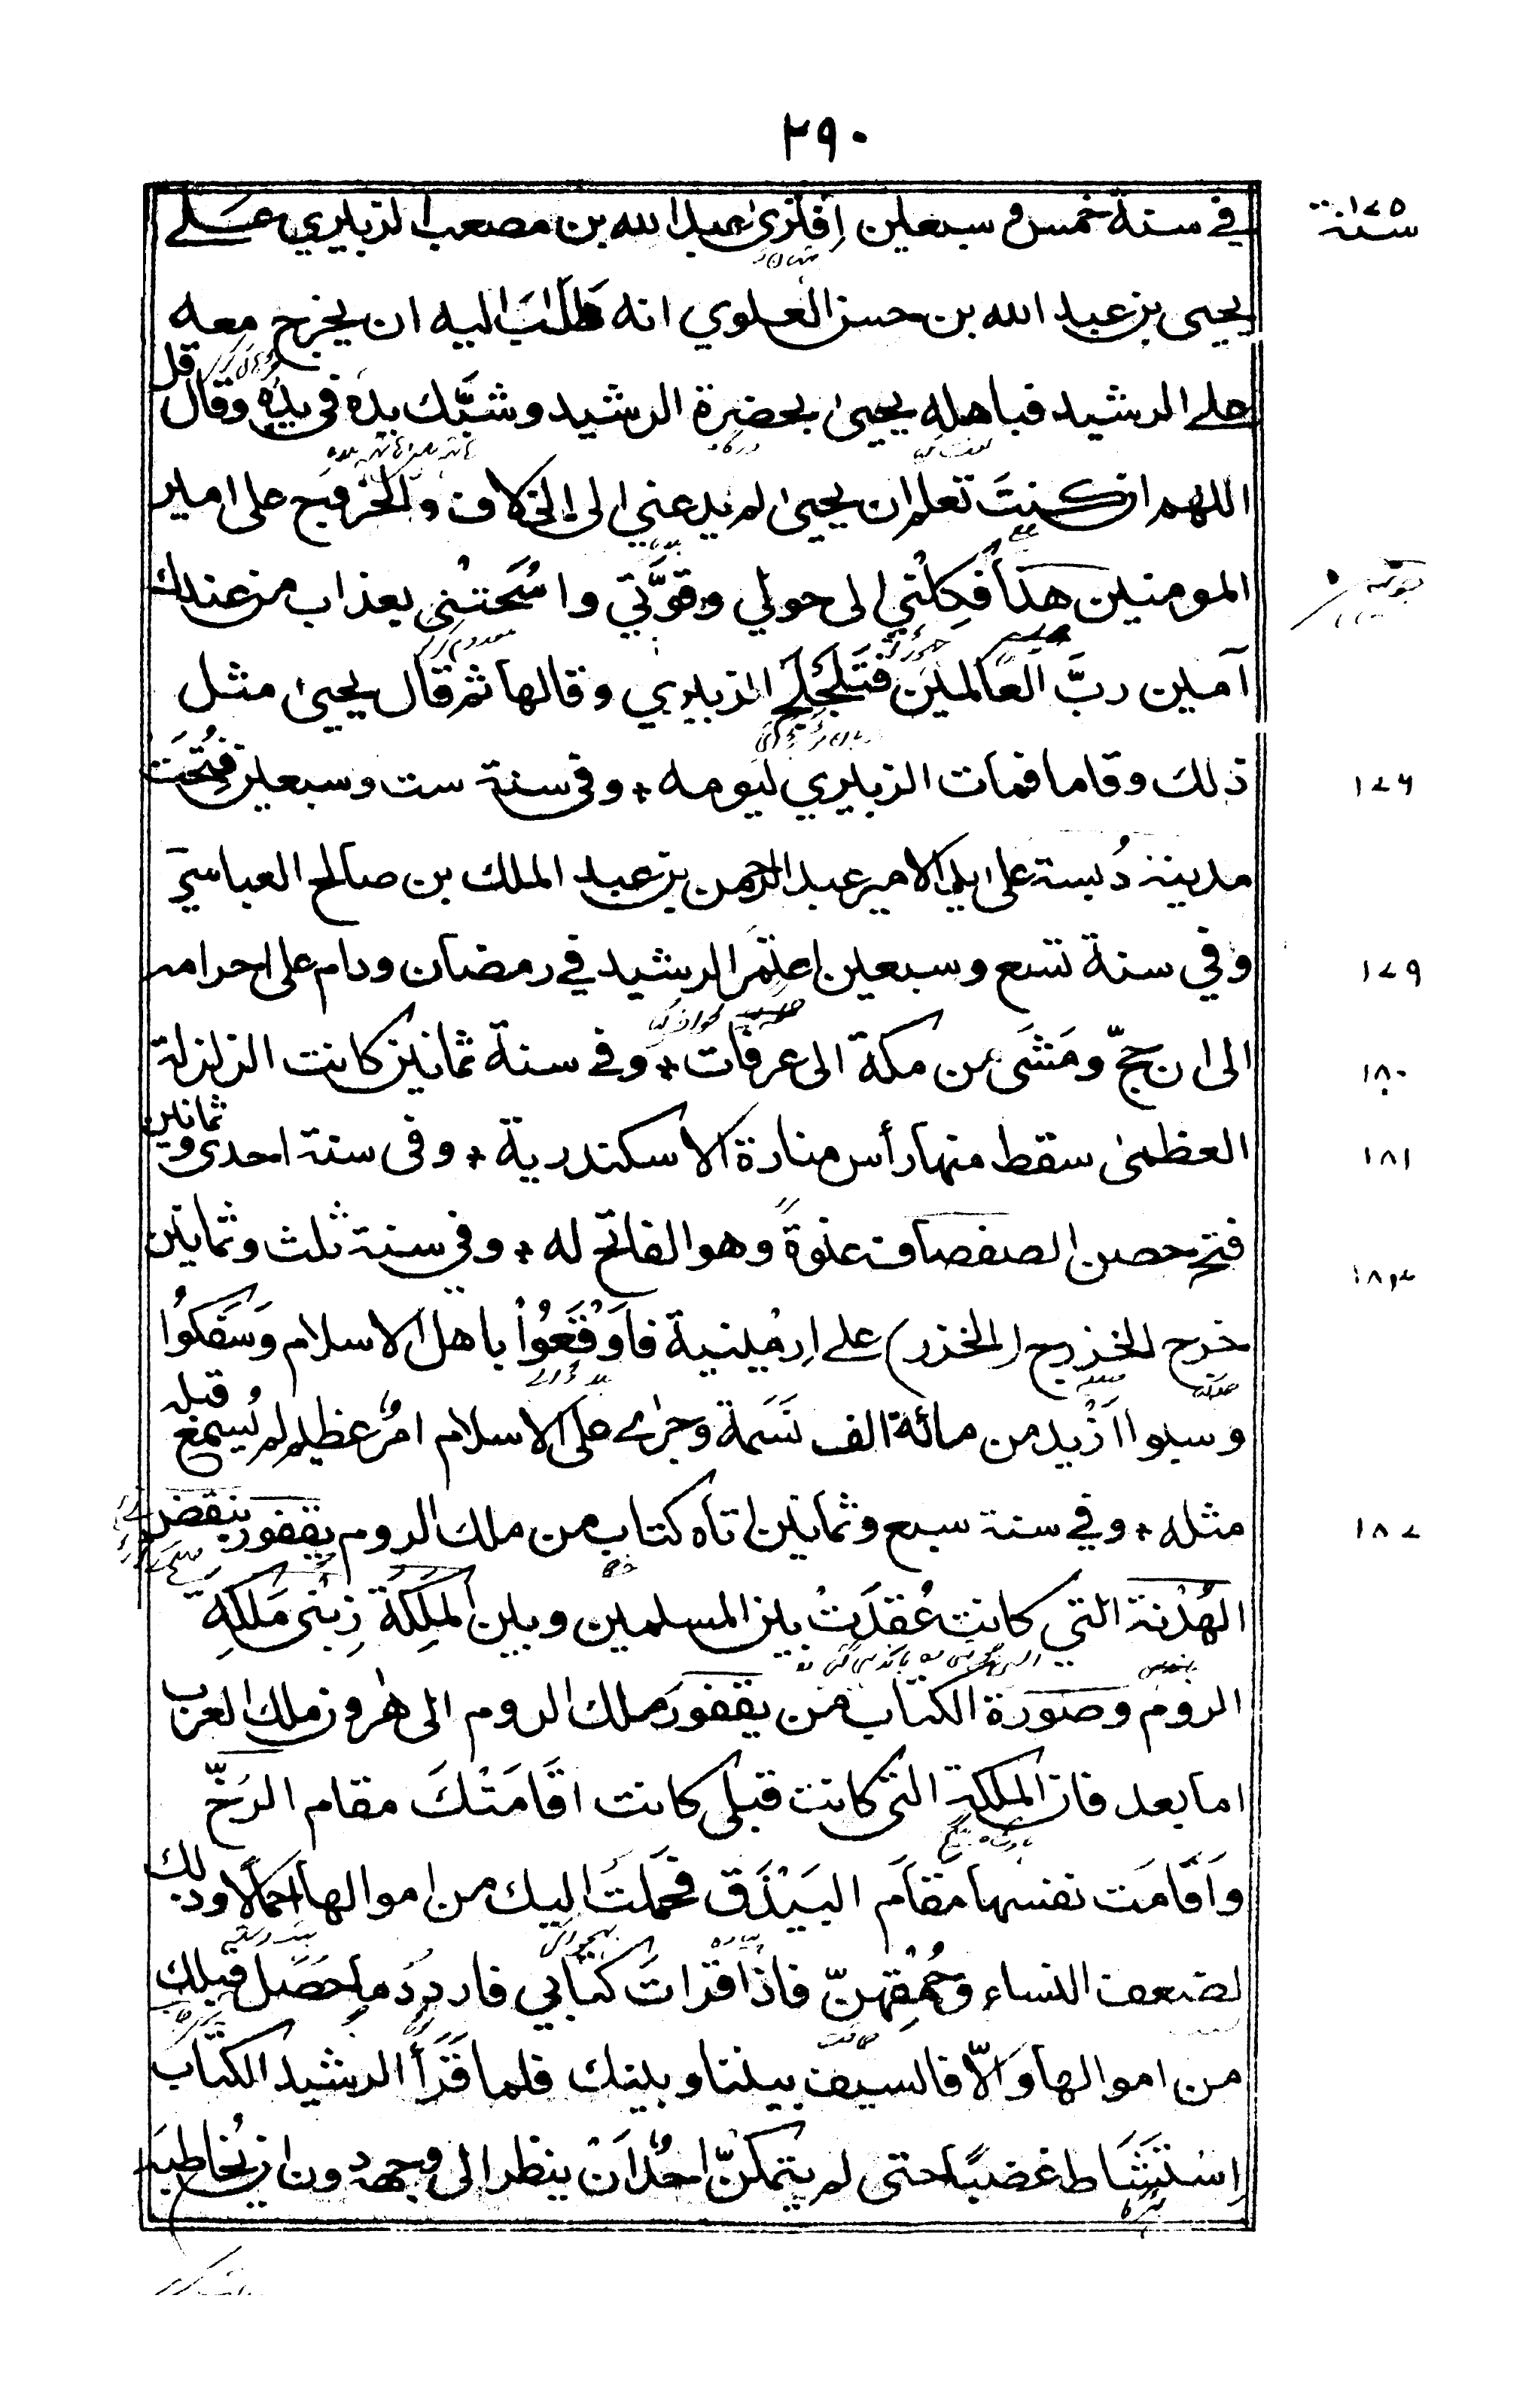 ٢٩٠
في سنة خمس و سبعين اِفترىٰ عبد الله بن مصعب الزبيري علے
يحيى بن عبد الله بن حسن العلوي انه طَلَبَ اليه ان يخرج معه
علے الرشيد فباهله يحيىٰ بحضرة الرشيد وشبَّك يده في يدِه وقال قل
اللهم ان كنتَ تعلم ان يحيىٰ لم يدعني الى الخلاف والخروج على امير
المومنين هذا فكِلْني الى حولي وقوَّتي واسْحَتْني بعذاب من عندك
آمين ربَّ العالمين فتَلَجْلَجَ الزبيري وقالها ثم قال يحيىٰ مثل
ذلك وقاما فمات الزبيري ليومه * وفي سنة ست وسبعين فُتِحَت
مدينة دُبسة على يد الامير عبد الرحمن بن عبد الملك بن صالح العباسي
وفي سنة تسع وسبعين اِعتَمَر الرشيد في رمضان ودام على احرامه
الى ان حجّ ومَشَى من مكة الى عرفات * وفي سنة ثمانين كانت الزلزلة
العظمىٰ سقط منها رأس منارة الاسكندرية * وفي سنة احدى وثمانين
فتح حصن الصفصاف عنوةً وهو الفاتح له * وفي سنة ثلث وثمانين
خرج الخزرج (الخذر) على اِرمينية فاَوْقَعُوْا باهل الاسلام وسَفَكُوْا
وسبوا ازْيد من مائة الف نَسَمة وجرٰے على الاسلام امرٌ عظيم لم يُسمع قبله
مثله * وفي سنة سبع وثمانين اتاه كتاب من ملك الروم يقفور بنقض
الهُدْنة التي كانت عُقدَتْ بين المسلمين وبين الملِكَة زِبْنى مَلكِة
الروم وصورة الكتاب من يقفور ملك الروم الى هٰرون ملك العرب
اما بعد فان الملكة التي كانت قبلى كانت اقَامَتْكَ مقام الرخّ
واَقَامَت نفسها مقامَ البَيْذَق فحَمَلَتْ اليك من اموالها احمالًا وذلك
لضعف النساء وحُمْقِهنّ فاذا قرَاتَ كتابي فاردِدْ ما حَصَل قِبلك
من اموالها والّا فالسيف بيننا وبينك فلما قَرَأَ الرشيد الكتاب
اِسْتَشَاط غضبًا حتى لم يتمكنّ احدٌ اَنْ ينظر الى وجهه دون ان يُخاطبَه
سنة ١٧٥
١٧٦
١٧٩
١٨٠
١٨١
١٨٣
١٨٧